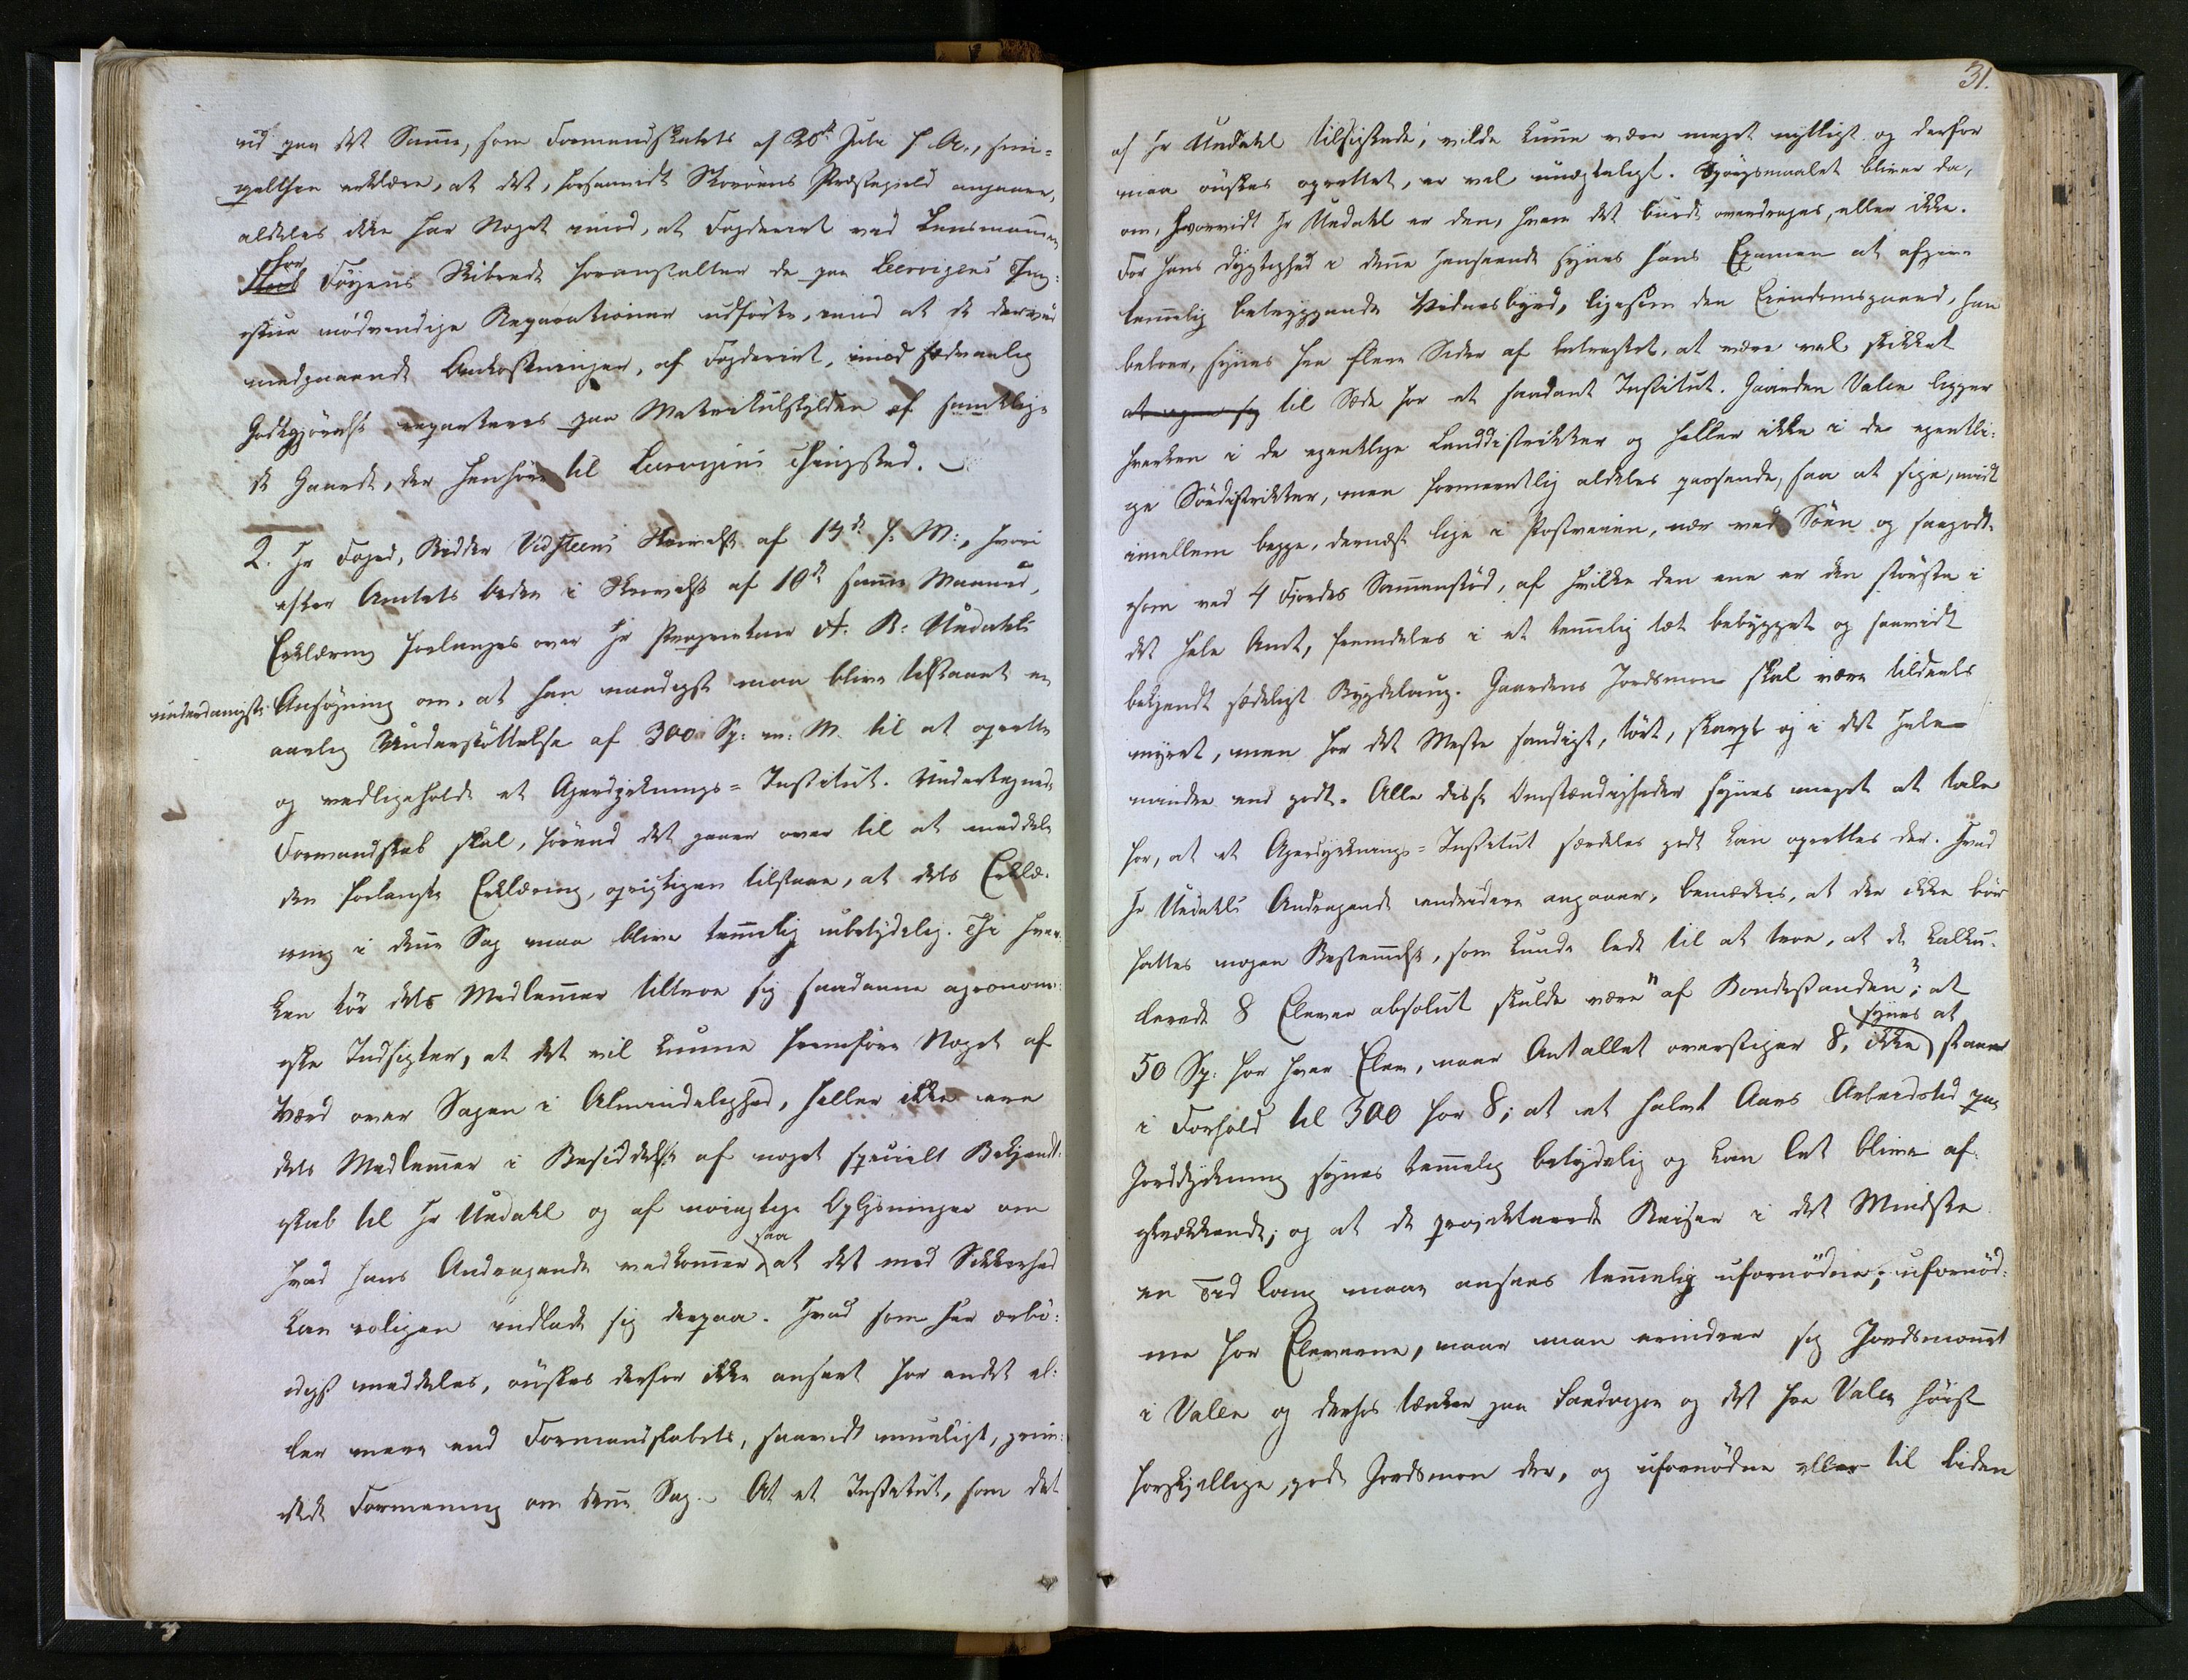 ud paa det Samme, som Formandskabets af 20de Juli f. A., frem-
gælthen erklære, at det, forsaavidt Skonevigs Præstegield angaaer,
aldeles ikke har Noget imod, at Fogderiet ved Lensmannen
for Föyens Skibrede foranstalter de paa Leervigens Thing-
stue nödvendige Reparationer udförte, mod at de derved
medgaaende Omkostninger, af Fogderiet, imod sædvanlig
Godtgjörelse reparteres paa Matrikulskylden af samtlige
de Gaarde, der henhöre til Leervigens Thingsted.
2. Hr Foged, Ridder Vidsteens Skrivelse af 19de f. M:, hvori
efter Amtets Orden i Skrivelse af 10de samme Maaned,
Erklæring forlanges over Hr Proprietair A. B. Undahls
underdanigste Ansögning om, at han naadigst maa blive tilstaaet en
aarlig Understöttelse af 300 Sp: m: M. til at oprette
og vedligeholde et Agerdyrknings-Institut. Undertegnede
Formandskab skal, förend det gaaer over til at meddele
den forlangte Erklæring, oprigtigen tilstaae, at dets Erklæ-
ring i denne Sag maa blive temmelig ubetydelig. Thi hver-
ken tör dets Medlemmer tiltroe sig saadanne agronomi-
ske Indsigter, at det vil kunne fremföre Noget af
Værd over Sagen i Almindelighed, heller ikke ere
dets Medlemmer i Besiddelse af noget specielt Bekjendt-
skab til Hr Undahl og af nöiagtige Oplysninger om
hvad hans Andragende vedkommer, saa at det med Sikkerhed
kan roligen indlade sig derpaa. Hvad som her ærbö-
digst meddeles, önskes derfor ikke anseet for andet el-
ler mere end Formandskabets, saavidt mueligt, grun-
dede Formening om denne Sag. At et Institut, som det
31.
af Hr Undahl tilsigtede, vilde kunne være meget nyttigt og derfor
maa önskes oprettet, er vel unægteligt. Spörgsmaalet bliver da,
om, hvorvidt Hr Undahl er den, hvem det burde overdrages, eller ikke.
For hans Dygtighed i denne Henseende synes hans Examen at afgive
temmelig betryggende Vidnesbyrd, ligesom den Eiendomsgaard, han
beboer, synes fra flere Sider af betragtet, at være vel skikket
at egne sig til Sæde for et saadant Institut. Gaarden Valen ligger
hverken i de egentlige Landdistrikter og heller ikke i de egentli-
ge Södistrikter, men formeentlig aldeles passende, saa at sige, midt
imellem begge, dernæst lige i Postveien, nær ved Söen og saagodt-
som ved 4 Fjordes Sammenstöd, af hvilke den ene er den störste i
det hele Amt, fremdeles i et temmelig tæt bebygget og saavidt
bekjendt sædeligt Bygdelaug. Gaardens Jordsmon skal være tildeels
myret, men for det Meste sandigt, tört, skarpt og i det Hele
mindre end godt. Alle disse Omstændigheder synes meget at tale
for, at et Agerdyrknings-Institut særdeles godt kan oprettes der. Hvad
Hr Undahls Andragende endvidere angaaer, bemærkes, at der ikke bör
fattes nogen Bestemmelse, som kunde lede til at troe, at de kalku-
lerede 8 Elever absolut skulde være "af Bondestanden"; at
50 Sp: for hver Elev, naar Antallet overstiger 8, ikke synes at staae
i Forhold til 300 for 8; at et halvt Aars Arbeidstid paa
Jorddyrkning synes temmelig betydelig og kan let blive af-
skrækkende; og at de projekterede Reiser i det Mindste
en Tid lang maae ansees temmelig ufornödne; ufornöd-
ne for Eleverne, naar man erindrer sig Jordsmonnet
i Valen og derhos tænker paa Landveien og det fra Valen höist
forskjellige, gode Jordsmon der, og ufornödne eller til liden